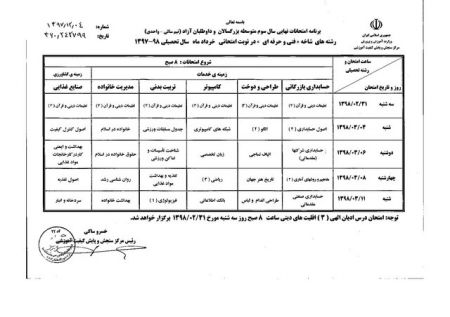 باسمه تعالی
۱۳۹۷/۱۲/۰۴
شماره
۳۷۰/۲۴۲۷۹۹
تاریخ
جمهوری اسلامی ایران
وزارت آموزش و پرورش
مرکز سنجش و پایش کیفیت آموزشی
برنامه امتحانات نهایی سال سوم متوسطه بزرگسالان و داوطلبان آزاد (نیم سالی - واحدی)
رشته های شاخه « فنی و حرفه ای » در نوبت امتحانی خرداد ماه سال تحصیلی ۹۸-۱۳۹۷
ساعت امتحان و رشته تحصیلی
روز و تاریخ امتحان
شروع امتحانات : ۸ صبح
زمینه ی خدمات
زمینه ی کشاورزی
حسابداری بازرگانی
طراحی و دوخت
کامپیوتر
تربیت بدنی
مدیریت خانواده
صنایع غذایی
سه شنبه ۱۳۹۸/۰۲/۳۱
تعلیمات دینی و قرآن (۳)
تعلیمات دینی و قرآن (۳)
تعلیمات دینی و قرآن (۳)
تعلیمات دینی و قرآن (۳)
تعلیمات دینی و قرآن (۳)
تعلیمات دینی و قرآن (۳)
شنبه ۱۳۹۸/۰۳/۰۴
اصول حسابداری (۲)
الگو (۲)
شبکه های کامپیوتری
جدول مسابقات ورزشی
خانواده در اسلام
اصول کنترل کیفیت
دوشنبه ۱۳۹۸/۰۳/۰۶
حسابداری شرکتها (مقدماتی)
الیاف نساجی
زبان تخصصی
شناخت تأسیسات و اماکن ورزشی
حقوق خانواده در اسلام
بهداشت و ایمنی کار در کارخانجات مواد غذایی
چهارشنبه ۱۳۹۸/۰۳/۰۸
مفاهیم و روشهای آماری (۲)
تاریخ هنر جهان
ریاضی (۳)
تغذیه و بهداشت ورزشی
روان شناسی رشد
اصول تغذیه
شنبه ۱۳۹۸/۰۳/۱۱
حسابداری صنعتی مقدماتی
طراحی اندام و لباس
بانک اطلاعاتی
فیزیولوژی (۱)
بهداشت خانواده
سردخانه و انبار
توجه: امتحان درس ادیان الهی (۳) اقلیت های دینی ساعت ۸ صبح روز سه شنبه مورخ ۱۳۹۸/۰۲/۳۱ برگزار خواهد شد.
خسرو ساکی
رئیس مرکز سنجش و پایش کیفیت آموزشی